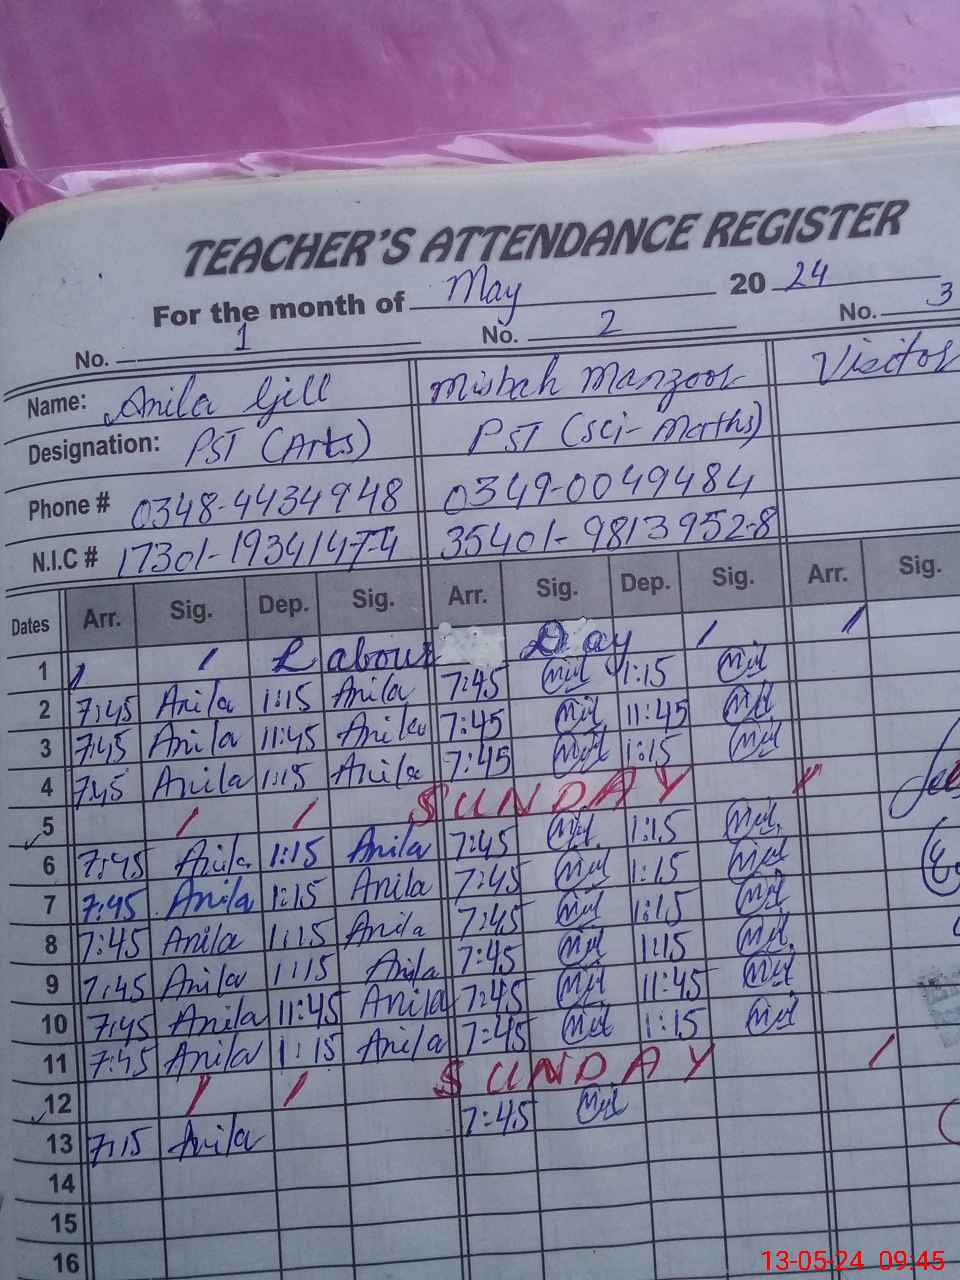 TEACHER'S ATTENDANCE REGISTER
For the month of May 2024
No. 1 No. 2 No. 3
Name: Anila Gill Misbah Manzoor Visitor
Designation: PST (Arts) PST (Sci-Maths)
Phone # 0348-4434948 0349-0049484
N.I.C # 17301-1934147-4 35401-9813952-8
Dates Arr. Sig. Dep. Sig. Arr. Sig. Dep. Sig. Arr. Sig.
1 Labour Day
2 7:45 Anila 1:15 Anila 7:45 1:15
3 7:45 Anila 11:45 Anila 7:45 11:45
4 7:45 Anila 1:15 Anila 7:45 1:15
5 SUNDAY
6 7:45 Anila 1:15 Anila 7:45 1:15
7 7:45 Anila 1:15 Anila 7:45 1:15
8 7:45 Anila 1:15 Anila 7:45 1:15
9 7:45 Anila 1:15 Anila 7:45 1:15
10 7:45 Anila 11:45 Anila 7:45 11:45
11 7:45 Anila 1:15 Anila 7:45 1:15
12 SUNDAY
13 7:15 Anila 7:45
14
15
16
13-05-24 09:45